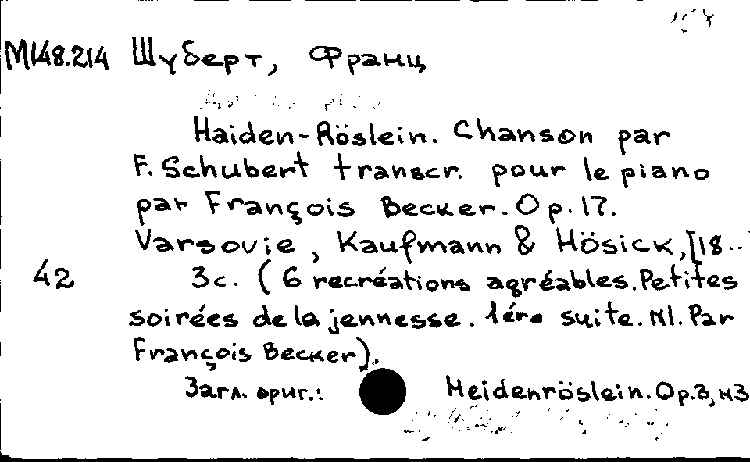 М148.214 Шуберт, Франц
Haiden-Röslein. Chanson par
F. Schubert transcr. pour le piano
par François Becker. Op. 17.
Varsovie, Kaufmann & Hösick, [18..
42 3c. (6 recréations agréables. Petites
soirées de la jennesse. 1ére suite. N1. Par
François Becker).
Загл. ориг.: Heidenröslein. Op. 3, н3